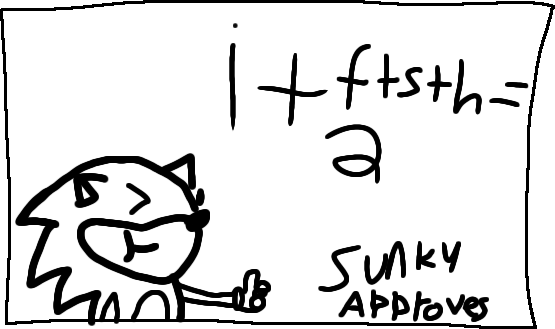 i + f+s+h =
a
SUNKY
APPROVES